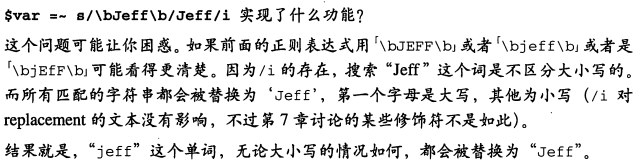 $var =~ s/\bJeff\b/Jeff/i 实现了什么功能?
这个问题可能让你困惑。如果前面的正则表达式用「\bJEFF\b」或者「\bjeff\b」或者是
「\bjEfF\b」可能看得更清楚。因为/i 的存在，搜索“Jeff”这个词是不区分大小写的。
而所有匹配的字符串都会被替换为‘Jeff’，第一个字母是大写，其他为小写（/i 对
replacement 的文本没有影响，不过第 7 章讨论的某些修饰符不是如此）。
结果就是，“jeff”这个单词，无论大小写的情况如何，都会被替换为“Jeff”。